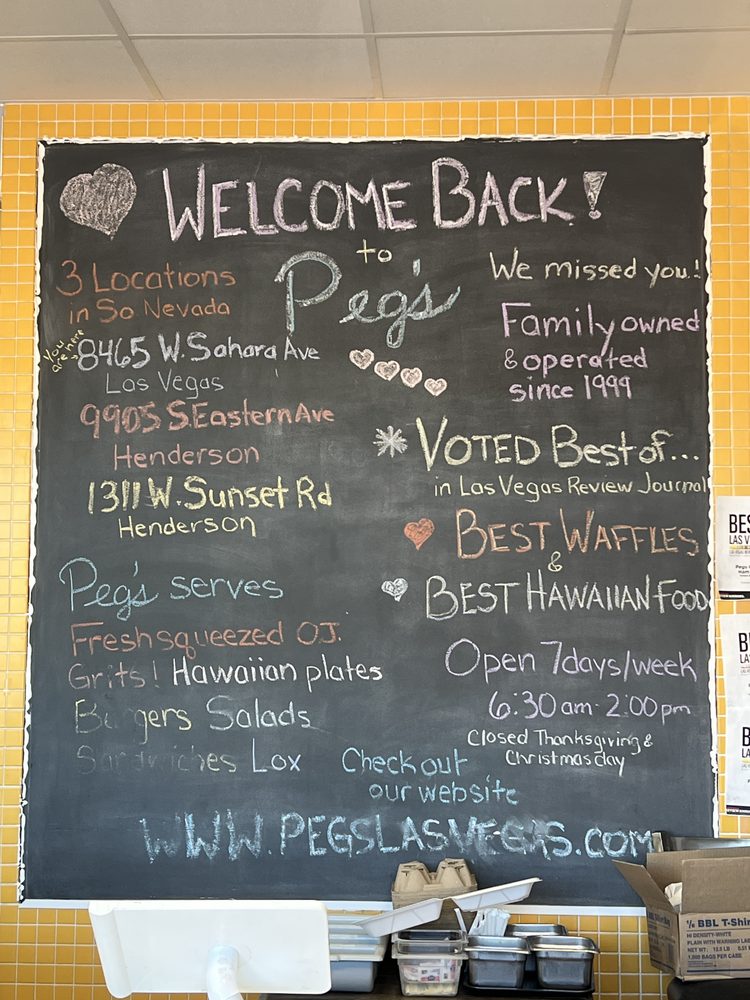 WELCOME BACK!
to
Peg's
3 Locations
in So Nevada
You
are here
8465 W. Sahara Ave
Las Vegas
9905 S. Eastern Ave
Henderson
1311 W. Sunset Rd
Henderson
Peg's serves
Fresh squeezed OJ.
Grits! Hawaiian plates
Burgers Salads
Sandwiches Lox
We missed you!
Family owned
& operated
since 1999
VOTED Best of...
in Las Vegas Review Journal
BEST WAFFLES
&
BEST HAWAIIAN FOOD
Open 7days/week
6:30 am - 2:00 pm
Closed Thanksgiving &
Christmas day
Check out
our website
WWW.PEGSLASVEGAS.COM
BES
LAS V
Peg's
B
LAS
B
LAS
1/6 BBL T-SHIR
HI DENSITY-WHITE
PLAIN WITH WARNING
NET WT: 12.5 LB
1,000 BAGS PER CASE